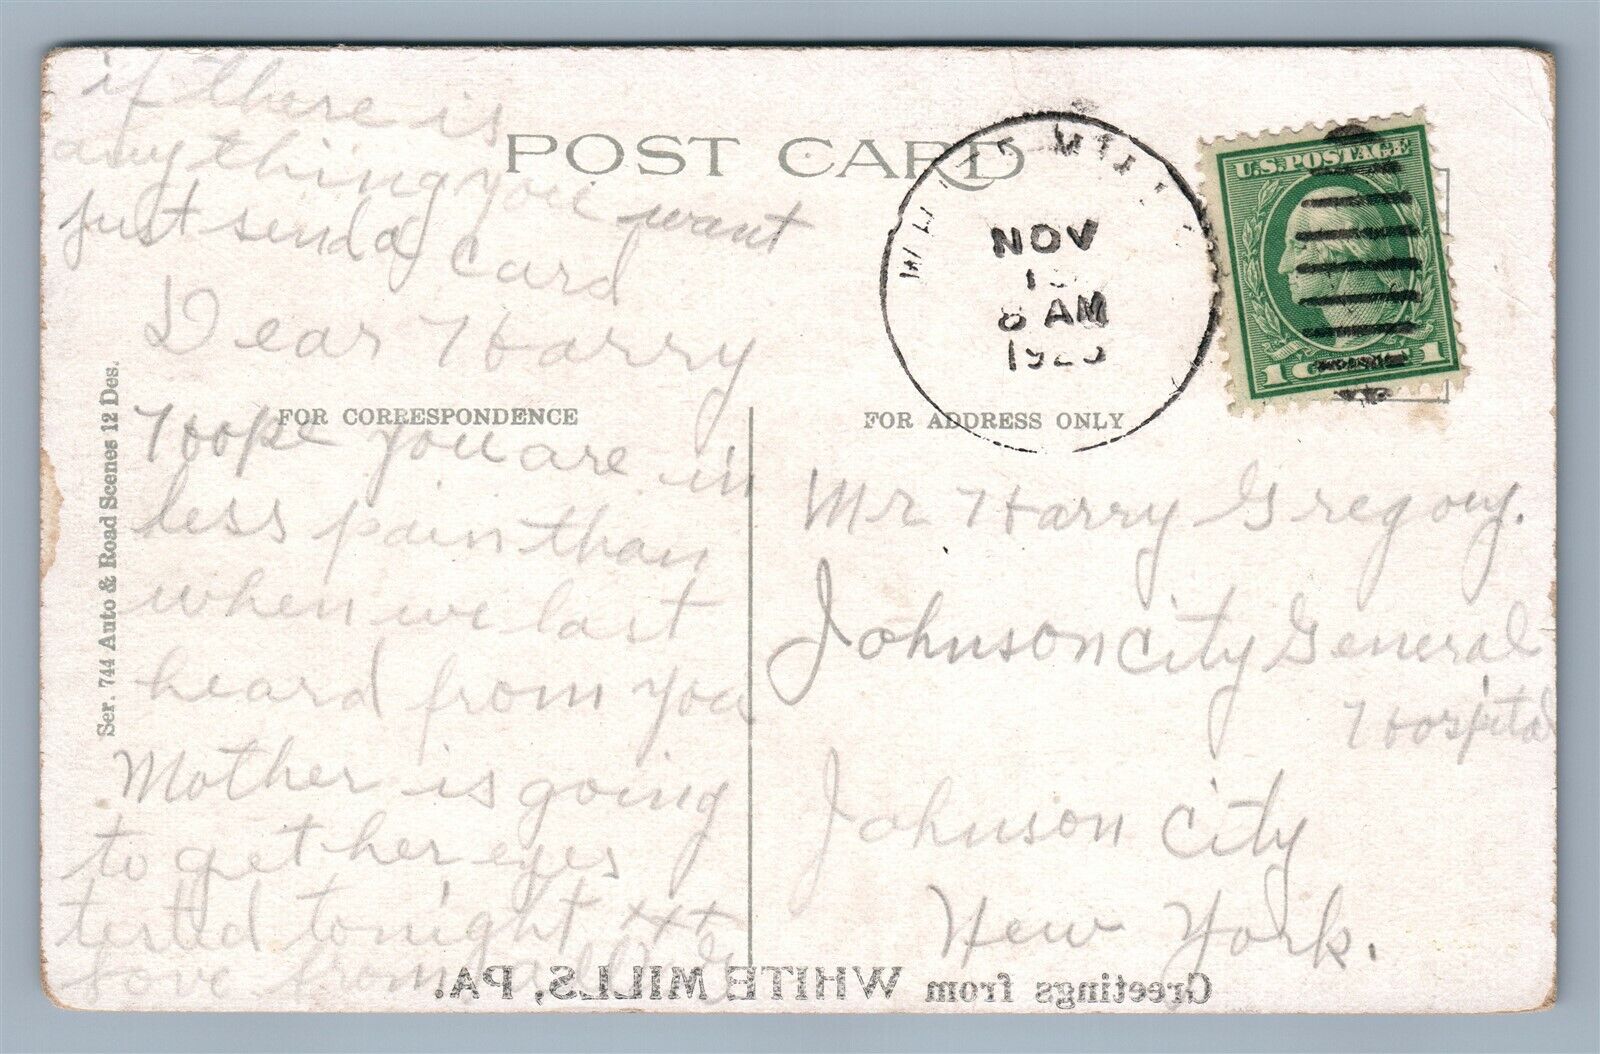 if there is
anything you want
just send a card
POST CARD
WHITE MILLS
NOV
8 AM
U.S.POSTAGE
1 1
Dear Harry
FOR CORRESPONDENCE
I Hope you are in
less pain than
when we last
heard from you
Mother is going
to get her eyes
tested tonight xxx
love from all
FOR ADDRESS ONLY
Mr Harry Gregory.
Johnson City General
Hospital
Johnson City
New York.
Ser. 744 Auto & Road Scenes 12 Des.
Greetings from WHITE MILLS, PA.